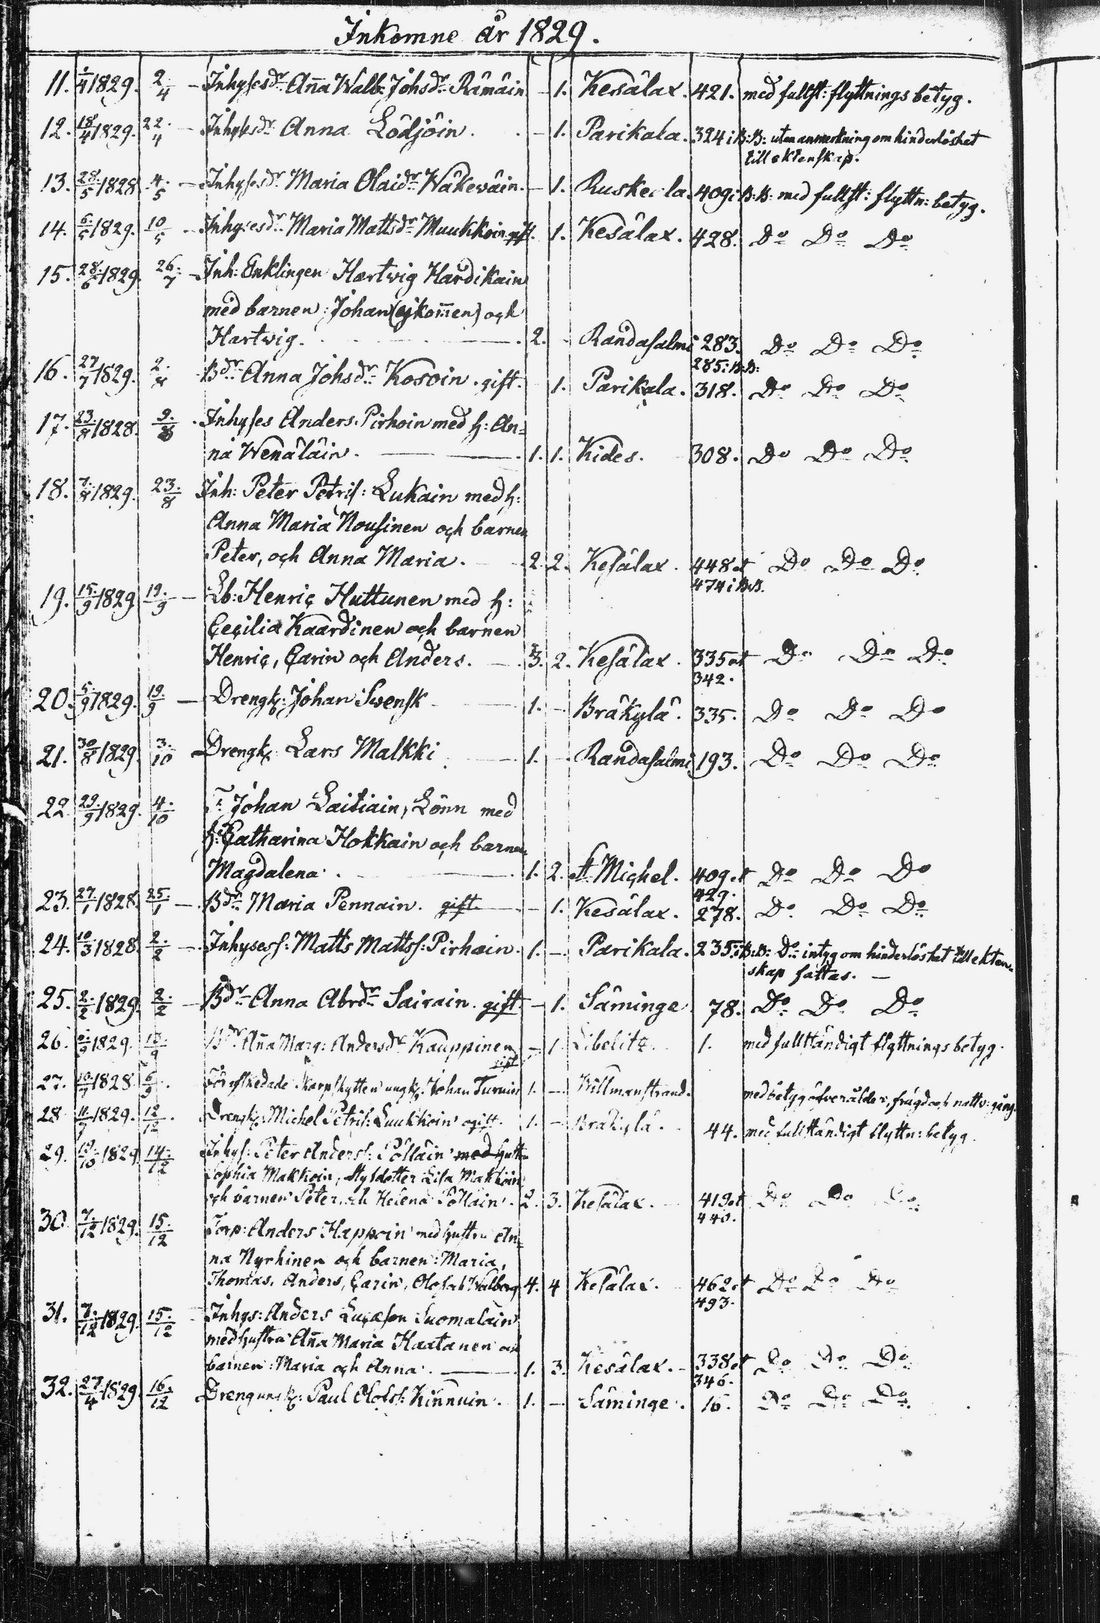 Inkomne år 1829.
11. 1/4 1829. 2/4 — Inhysesdr. Aña Walb: Johsdr. Rämäin — 1. Kesälax. 421. med fullst: flyttnings betyg.
12. 18/4 1829. 22/4 — Inhysesdr. Anna Lödjöin. — 1. Parikala. 324 i B:B: utan anmerkning om hinderlöshet
till ektenskap.
13. 28/5 1828 4/5 — Inhysesdr. Maria Olaidr. Wäkewäin. — 1. Ruskeala. 409 i B:B: med fullst: flyttn: betyg.
14. 5/5 1829. 10/5 — Inhysesdr. Maria Mattsdr. Muukkoin gift. 1. Kesälax. 428. Do Do Do
15. 28/6 1829. 26/7 — Inh: Enklingen Hartwig Hardikain
med barnen: Johan (ej kom̃en) och
Hartwig. 2. — Randasalmi 283. Do Do Do
285. B:B:
16. 27/7 1829. 2/8 — Bdr. Anna Johsdr. Kosoin. gift. — 1. Parikala. 318. Do Do Do
17. 23/8 1828. 9/8 Inhyses Anders Pirhoin med h: An-
na Wenäläin. 1. 1. Kides. 308. Do Do Do
18. 7/8 1829. 23/8 Inh: Peter Petris: Lukain med h:
Anna Maria Nousinen och barnen
Peter, och Anna Maria. 2. 2. Kesälax 448 et Do Do Do
474 i B:B.
19. 15/9 1829 19/9 — Lb: Henric Huttunen med h:
Cecilia Kaardinen och barnen
Henric, Carin och Anders. 3. 2. Kesälax. 335 et Do Do Do
342.
20. 5/9 1829. 19/9 — Drengk: Johan Swensk 1. — Bräkylä. 335. Do Do Do
21. 30/8 1829. 3/10 Drengk: Lars Malkki 1. — Randasalmi 193. Do Do Do
22 29/9 1829. 4/10 Johan Laitiain, Lönn med
h: Catharina Hokkain och barnen
Magdalena. 1. 2. St Michel. 409 et Do Do Do
429.
23. 27/1 1828 25/1 — Bdr. Maria Pennain. gift — 1. Kesälax. 278. Do Do Do
24. 10/3 1828 2/2 — Inhyses s. Matts Mattss. Pirhoin. 1. — Parikala. 235. i B:B: Do intyg om hinderlöshet till ekten-
skap fattas. —
25. 2/2 1829. 2/2 — Bdr. Anna Abrdr. Sairain. gift — 1. Säminge 78. Do Do Do
26. 1829. Bdr. Aña Marg: Andersdr. Kauppinen — 1. Libelitz. 1. med fullständigt flyttnings betyg.
gift
27. 1828 Förafskedade Skarpskytten ungk: Johan Turunen 1. — Willmanstrand. med betyg öfver ålder, frägd och nattv: gång.
28 1829. 12/12 Drengk: Michel Petris: Luukkoin ogift. 1. — Bräkylä. 44. med fullständigt flyttn: betyg.
29. 1829 14/12 Inhys: Peter Anders: Pöllain med hustru
Sophia Makkoin, styfdotter Lisa Makkoin
och barnen Peter och Helena Pöllain. 2. 3. Kesälax. 419 et Do Do Do
440.
30 7/12 1829. 15/12 Torp: Anders Happoin med hustru An-
na Nyrhinen och barnen: Maria,
Thomas, Anders, Carin, Olof och Walborg 4. 4 Kesälax. 462 et Do Do Do
493.
31. 7/12 1829. 15/12 Inhys: Anders Lucasson Suomalain
med hustru Aña Maria Kaatanen och
barnen: Maria och Anna. 1. 3. Kesälax. 338 et Do Do Do
346.
32. 27/4 1829 16/12 Dreng ungk: Paul Olofss: Kinnuin. 1. — Säminge. 16. Do Do Do